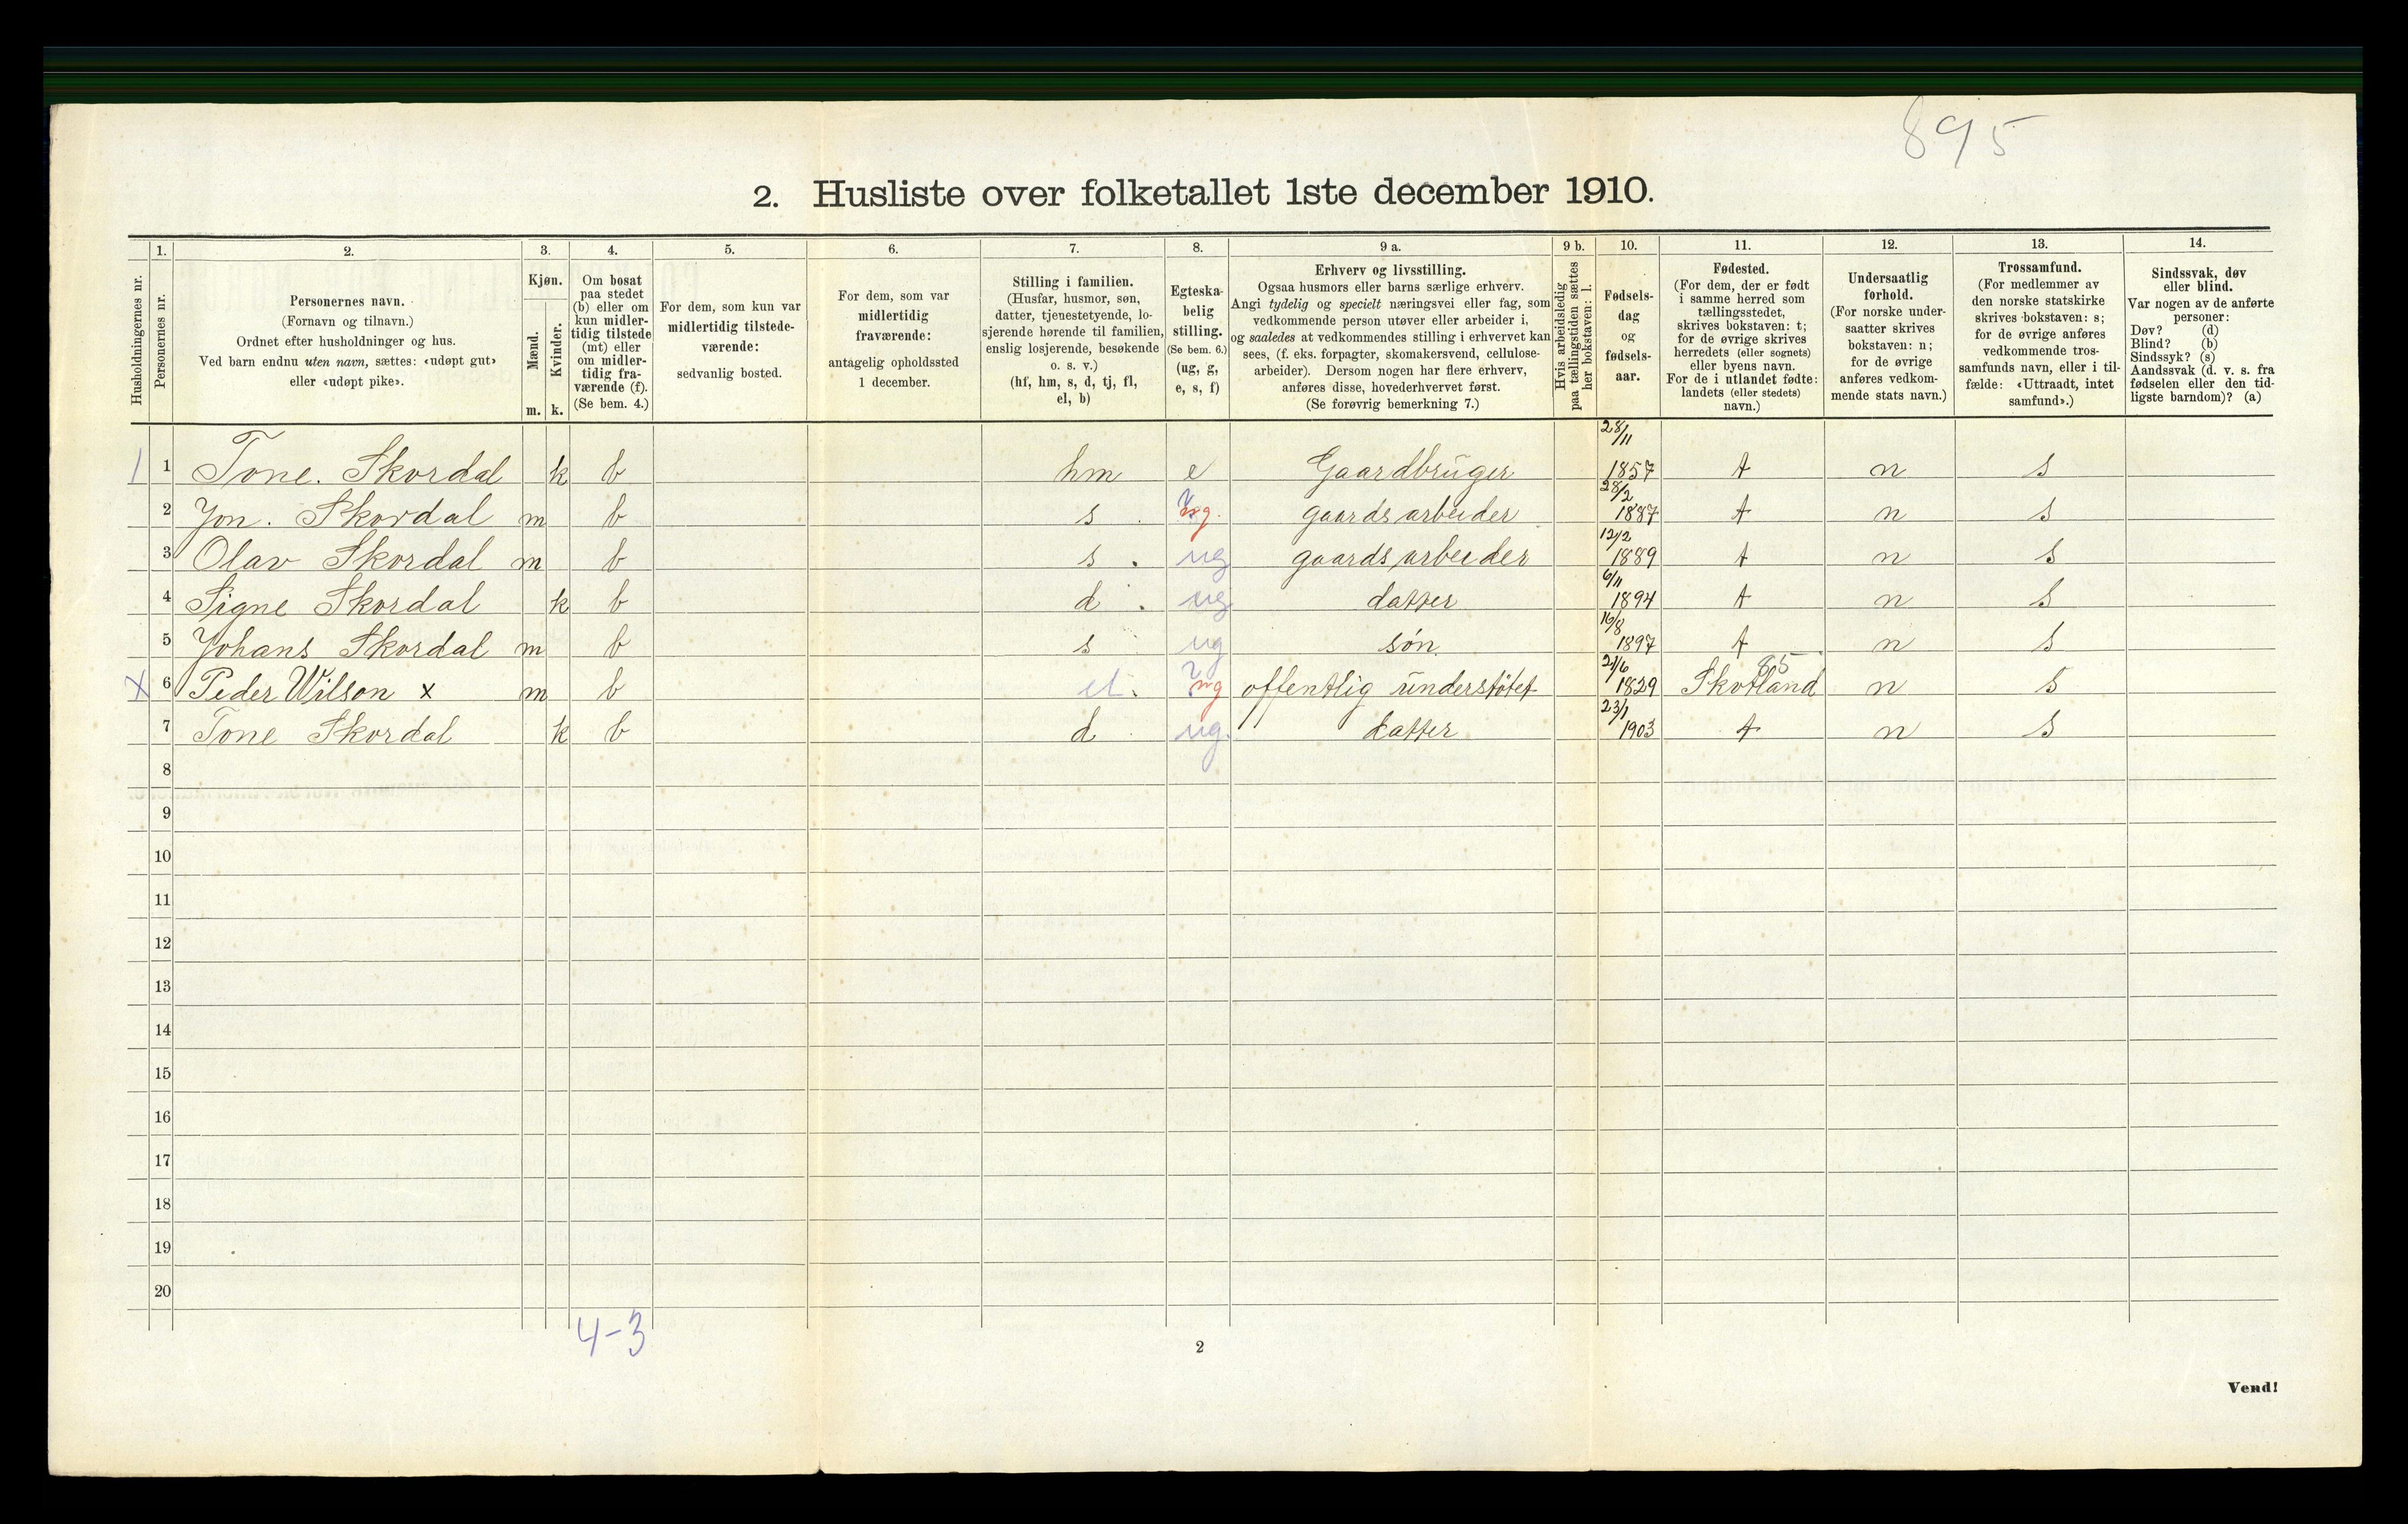 895
2. Husliste over folketallet 1ste december 1910.
Husholdningernes nr.
1. Personernes nr.
2. Personernes navn. (Fornavn og tilnavn.) Ordnet efter husholdninger og hus. Ved barn endnu uten navn, sættes: «udøpt gut» eller «udøpt pike».
3. Kjøn. Mænd. m. Kvinder. k.
4. Om bosat paa stedet (b) eller om kun midler-tidig tilstede (mt) eller om midler-tidig fra-værende (f). (Se bem. 4.)
5. For dem, som kun var midlertidig tilstede-værende: sedvanlig bosted.
6. For dem, som var midlertidig fraværende: antagelig opholdssted 1 december.
7. Stilling i familien. (Husfar, husmor, søn, datter, tjenestetyende, lo-sjerende hørende til familien, enslig losjerende, besøkende o. s. v.) (hf, hm, s, d, tj, fl, el, b)
8. Egteska-belig stilling. (Se bem. 6.) (ug, g, e, s, f)
9 a. Erhverv og livsstilling. Ogsaa husmors eller barns særlige erhverv. Angi tydelig og specielt næringsvei eller fag, som vedkommende person utøver eller arbeider i, og saaledes at vedkommendes stilling i erhvervet kan sees, (f. eks. forpagter, skomakersvend, cellulose-arbeider). Dersom nogen har flere erhverv, anføres disse, hovederhvervet først. (Se forøvrig bemerkning 7.)
9 b. Hvis arbeidsledig paa tællingstiden sættes her bokstaven: l.
10. Fødsels-dag og fødsels-aar.
11. Fødested. (For dem, der er født i samme herred som tællingsstedet, skrives bokstaven: t; for de øvrige skrives herredets (eller sognets) eller byens navn. For de i utlandet fødte: landets (eller stedets) navn.)
12. Undersaatlig forhold. (For norske under-saatter skrives bokstaven: n; for de øvrige anføres vedkom-mende stats navn.)
13. Trossamfund. (For medlemmer av den norske statskirke skrives bokstaven: s; for de øvrige anføres vedkommende tros-samfunds navn, eller i til-fælde: «Uttraadt, intet samfund».)
14. Sindssvak, døv eller blind. Var nogen av de anførte personer: Døv? (d) Blind? (b) Sindssyk? (s) Aandssvak (d. v. s. fra fødselen eller den tid-ligste barndom)? (a)
1 1 Tone. Skordal k b hm e Gaardbruger 28/11 1857 t n s
2 Jon. Skordal m b s ug. gaardsarbeider 28/2 1887 t n s
3 Olav Skordal m b s ug gaardsarbeider 12/2 1889 t n s
4 Signe Skordal k b d ug datter 6/11 1894 t n s
5 Johans Skordal m b s ug søn 16/8 1897 t n s
x 6 Peder Wilson x m b el. ug offentlig understøtet 21/6 1829 Skotland 85 n s
7 Tone Skordal k b d ug. datter 23/1 1903 t n s
8
9
10
11
12
13
14
15
16
17
18
19
20
4-3
2
Vend!